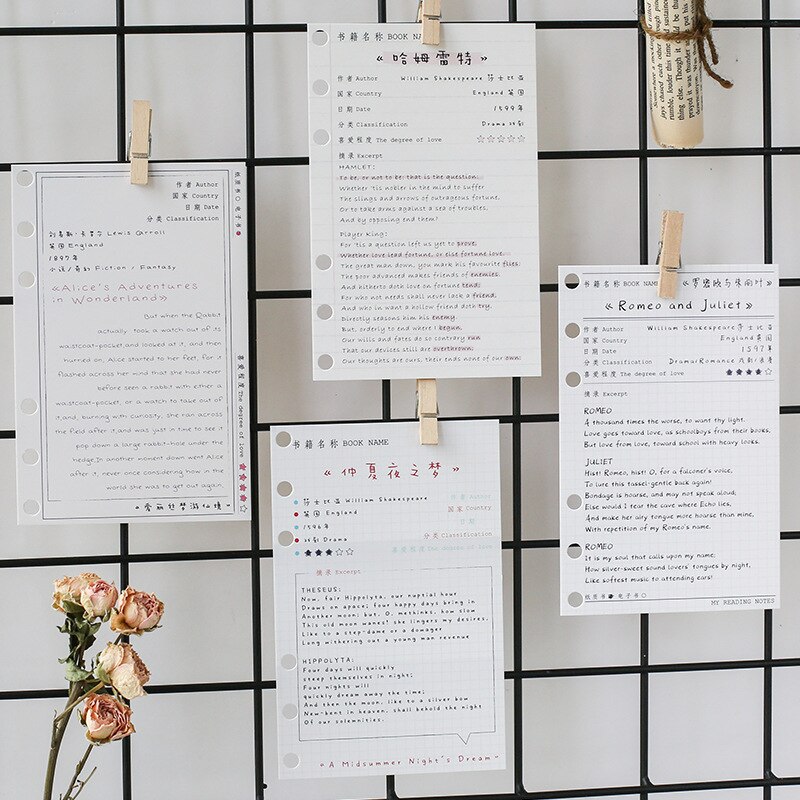 作者 Author
国家 Country
日期 Date
分类 Classification
Lewis Carroll
英国 England
1897年
小说/奇幻 Fiction / Fantasy
《Alice's Adventures
in Wonderland》
But when the Rabbit
actually took a watch out of its
waistcoat-pocket and looked at it, and then
hurried on, Alice started to her feet, for it
flashed across her mind that she had never
before seen a rabbit with either a
waistcoat-pocket, or a watch to take out of
it and, burning with curiosity, she ran across
the field after it and was just in time to see it
pop down a large rabbit-hole under the
hedge. In another moment down went Alice
after it, never once considering how in the
world she was to get out again.
《爱丽丝梦游仙境》
纸质书 电子书
喜爱程度 The degree of love
书籍名称 BOOK NA
《哈姆雷特》
作者 Author William Shakespeare 莎士比亚
国家 Country England 英国
日期 Date 1599年
分类 Classification Drama 戏剧
喜爱程度 The degree of love ☆☆☆☆☆
摘录 Excerpt
HAMLET:
To be, or not to be: that is the question:
Whether 'tis nobler in the mind to suffer
The slings and arrows of outrageous fortune,
Or to take arms against a sea of troubles,
And by opposing end them?
Player King:
For 'tis a question left us yet to prove,
Whether love lead fortune, or else fortune love.
The great man down, you mark his favourite flies;
The poor advanced makes friends of enemies.
And hitherto doth love on fortune tend;
For who not needs shall never lack a friend,
And who in want a hollow friend doth try,
Directly seasons him his enemy.
But, orderly to end where I begun,
Our wills and fates do so contrary run
That our devices still are overthrown;
Our thoughts are ours, their ends none of our own:
书籍名称 BOOK NAME
《仲夏夜之梦》
莎士比亚 William Shakespeare 作者 Author
英国 England 国家 Country
1596年 日期 Date
戏剧 Drama 分类 Classification
★★★☆☆ 喜爱程度 The degree of love
摘录 Excerpt
THESEUS:
Now, fair Hippolyta, our nuptial hour
Draws on apace; four happy days bring in
Another moon: but, O, methinks, how slow
This old moon wanes! she lingers my desires,
Like to a step-dame or a dowager
Long withering out a young man revenue
HIPPOLYTA:
Four days will quickly
steep themselves in night;
Four nights will
quickly dream away the time;
And then the moon, like to a silver bow
New-bent in heaven, shall behold the night
Of our solemnities.
《A Midsummer Night's Dream》
书籍名称 BOOK NAME 《罗密欧与朱丽叶》
《Romeo and Juliet》
作者 Author William Shakespeare 莎士比亚
国家 Country England 英国
日期 Date 1597年
分类 Classification Drama/Romance 戏剧/浪漫
喜爱程度 The degree of love ★★★★☆
摘录 Excerpt
ROMEO
A thousand times the worse, to want thy light.
Love goes toward love, as schoolboys from their books,
But love from love, toward school with heavy looks.
JULIET
Hist! Romeo, hist! O, for a falconer's voice,
To lure this tassel-gentle back again!
Bondage is hoarse, and may not speak aloud;
Else would I tear the cave where Echo lies,
And make her airy tongue more hoarse than mine,
With repetition of my Romeo's name.
ROMEO
It is my soul that calls upon my name:
How silver-sweet sound lovers' tongues by night,
Like softest music to attending ears!
纸质书 电子书
MY READING NOTES